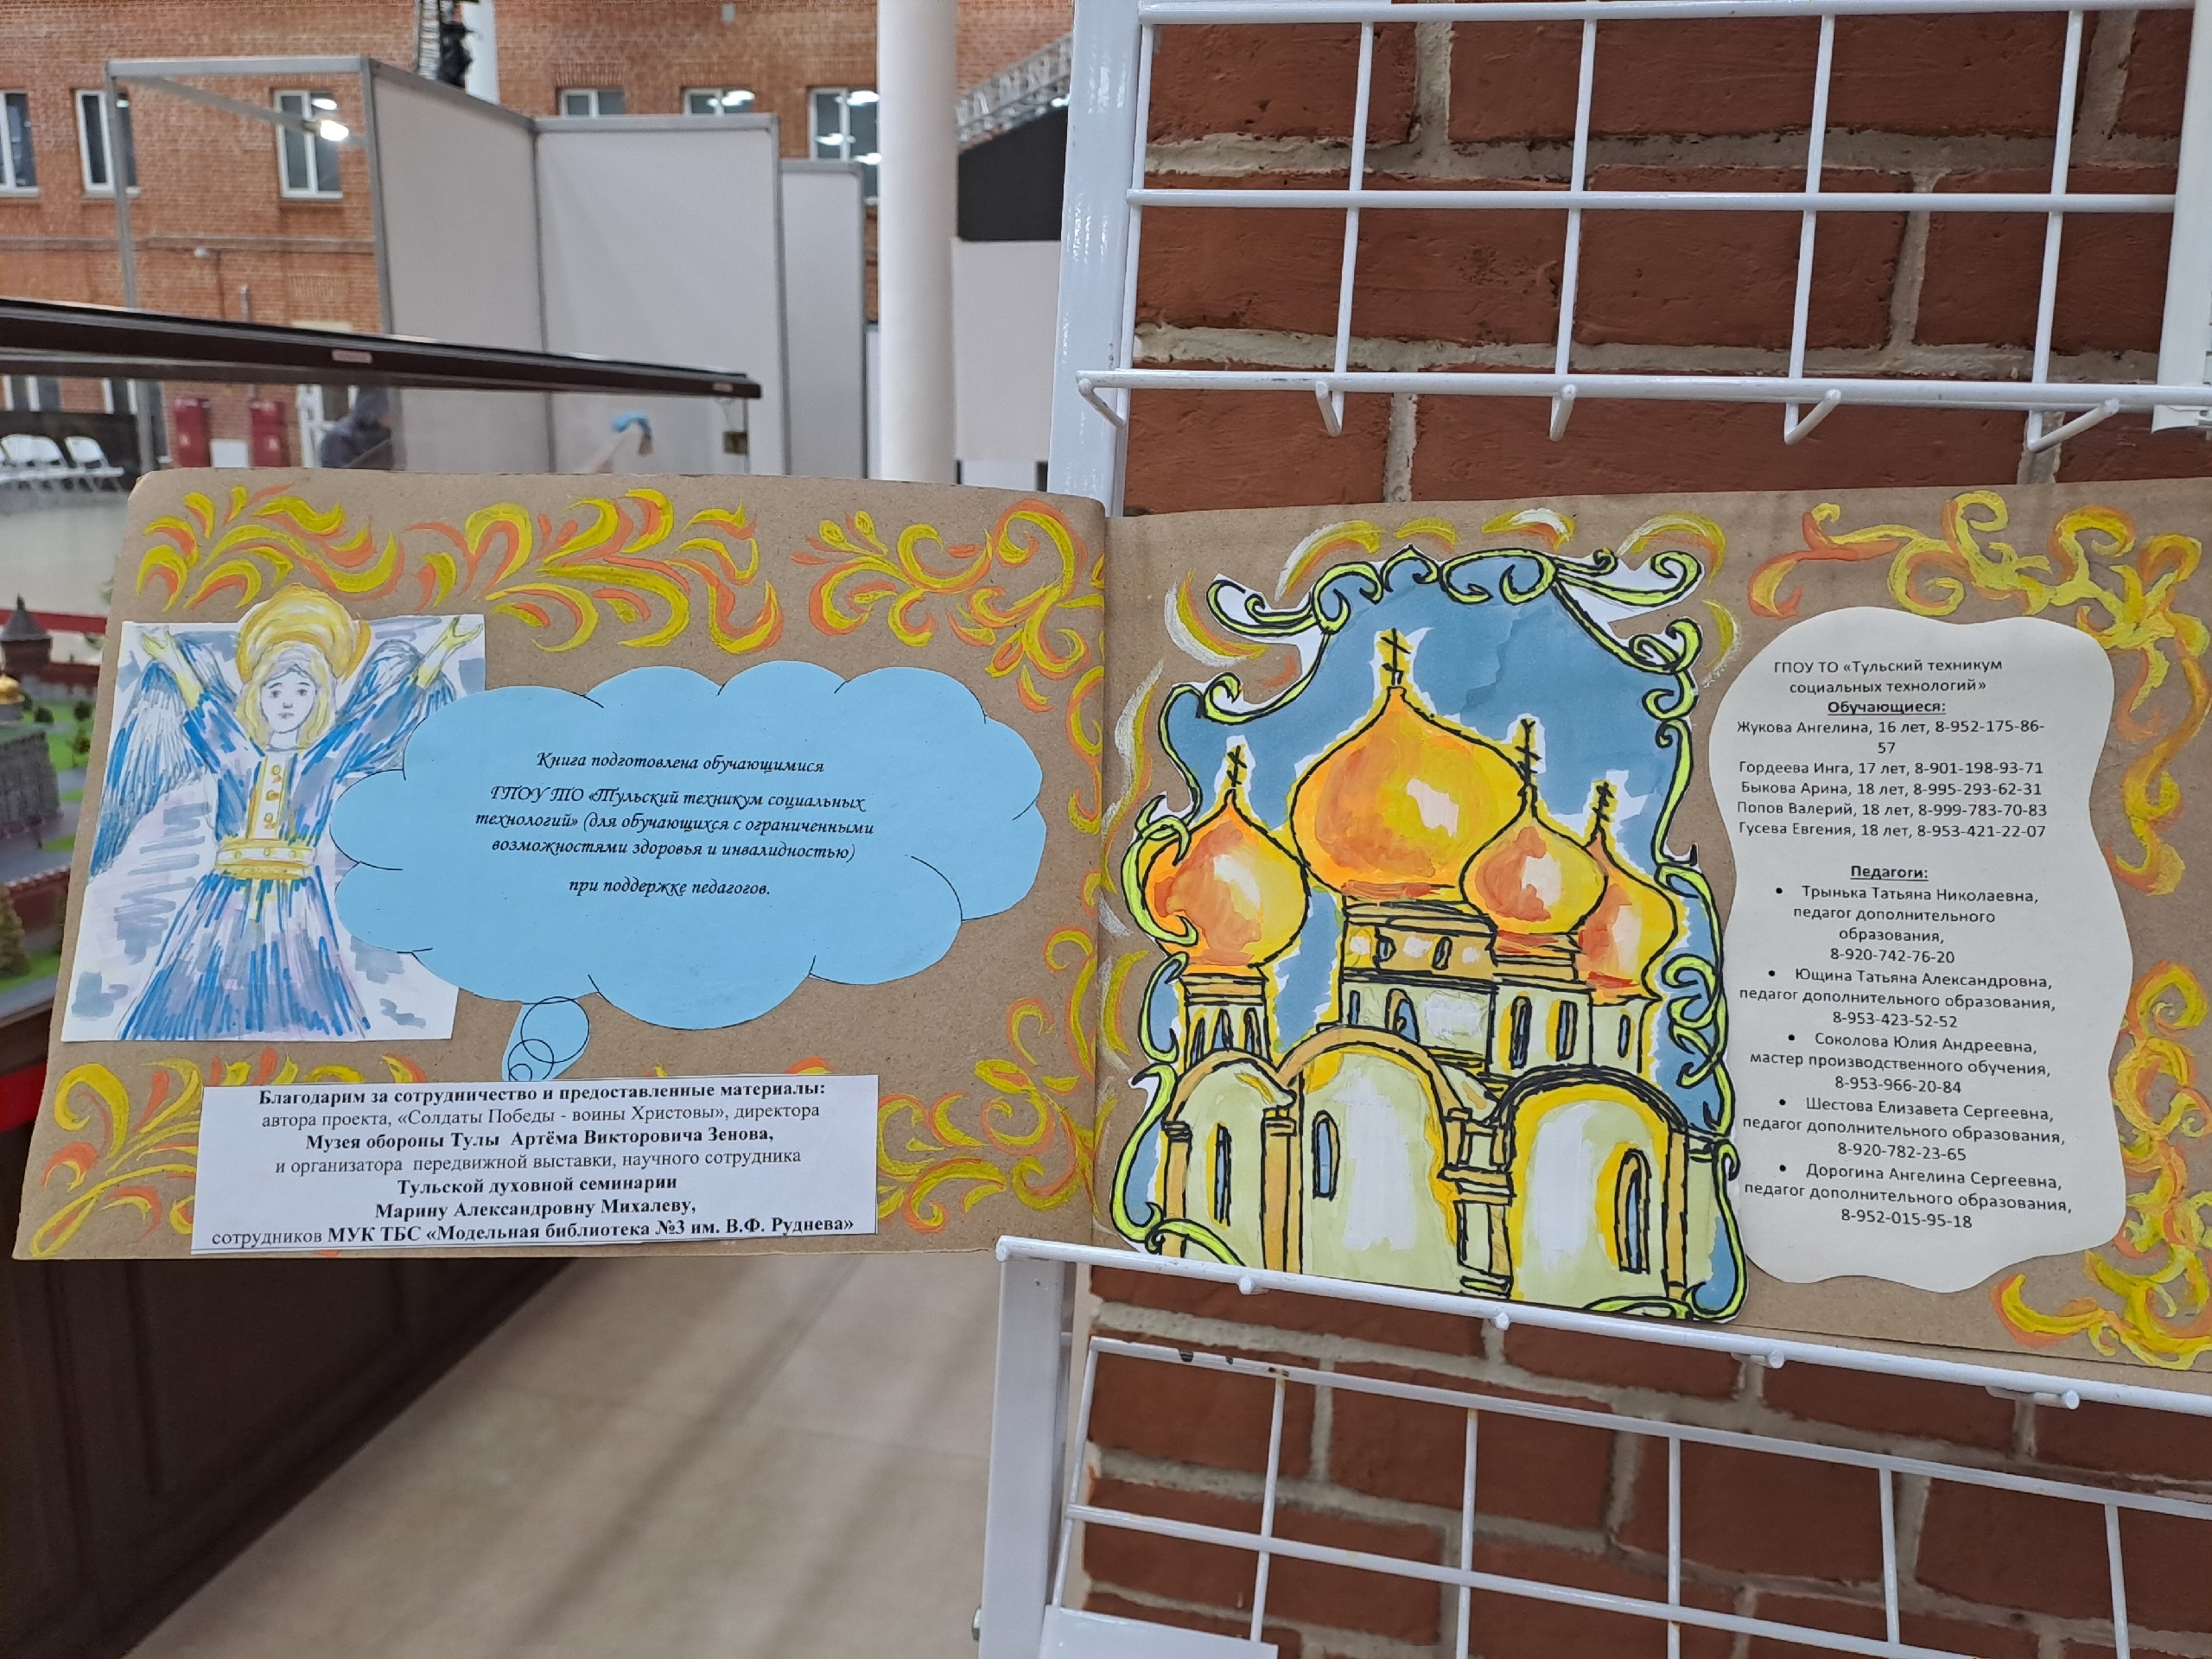 Книга подготовлена обучающимися
ГПОУ ТО «Тульский техникум социальных
технологий» (для обучающихся с ограниченными
возможностями здоровья и инвалидностью)
при поддержке педагогов.
Благодарим за сотрудничество и предоставленные материалы:
автора проекта, «Солдаты Победы - воины Христовы», директора
Музея обороны Тулы Артёма Викторовича Зенова,
и организатора передвижной выставки, научного сотрудника
Тульской духовной семинарии
Марину Александровну Михалеву,
сотрудников МУК ТБС «Модельная библиотека №3 им. В.Ф. Руднева»
ГПОУ ТО «Тульский техникум
социальных технологий»
Обучающиеся:
Жукова Ангелина, 16 лет, 8-952-175-86-
57
Гордеева Инга, 17 лет, 8-901-198-93-71
Быкова Арина, 18 лет, 8-995-293-62-31
Попов Валерий, 18 лет, 8-999-783-70-83
Гусева Евгения, 18 лет, 8-953-421-22-07
Педагоги:
• Трынька Татьяна Николаевна,
педагог дополнительного
образования,
8-920-742-76-20
• Ющина Татьяна Александровна,
педагог дополнительного образования,
8-953-423-52-52
• Соколова Юлия Андреевна,
мастер производственного обучения,
8-953-966-20-84
• Шестова Елизавета Сергеевна,
педагог дополнительного образования,
8-920-782-23-65
• Дорогина Ангелина Сергеевна,
педагог дополнительного образования,
8-952-015-95-18